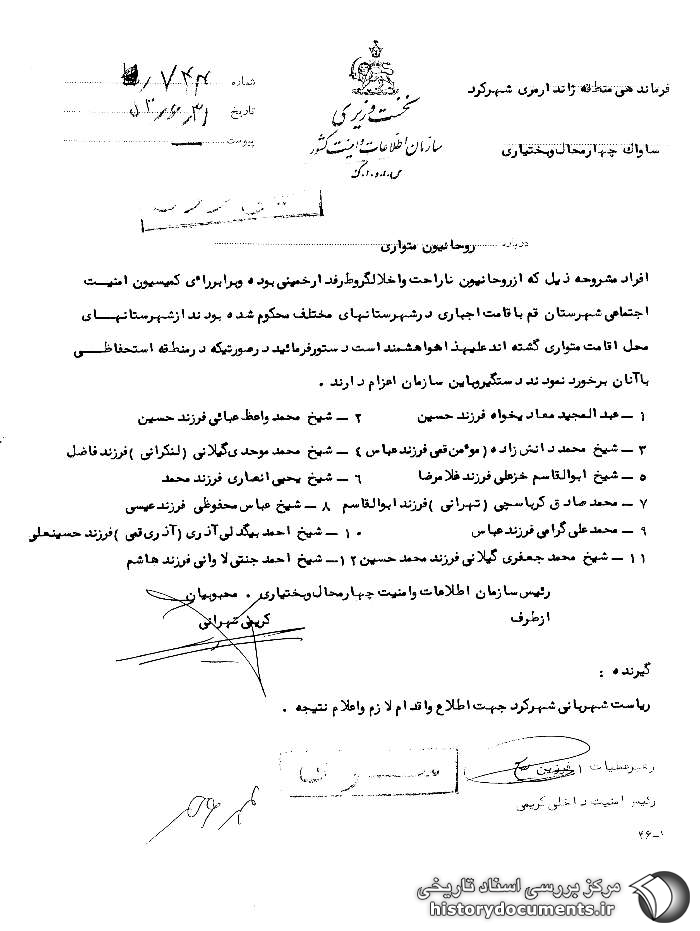 فرماندهی منطقه ژاندارمری شهرکرد
ساواک چهارمحال وبختیاری
نخست وزیری
سازمان اطلاعات و امنیت کشور
س.ا.و.ا.ک
شماره
تاریخ ۵۳/۶/۳۱
پیوست
درباره روحانیون متواری
افراد مشروحه ذیل که ازروحانیون ناراحت واخلالگروطرفدارخمینی بوده وبرابررای کمیسیون امنیت
اجتماعی شهرستان قم باقامت اجباری درشهرستانهای مختلف محکوم شده بودند ازشهرستانهای
محل اقامت متواری گشته اند علیهذا خواهشمند است دستورفرمائید درصورتیکه درمنطقه استحفاظی
باآنان برخورد نمودند دستگیروباین سازمان اعزام دارند .
۱ – عبدالمجید معادیخواه فرزند حسین ۲ – شیخ محمد واعظ عبائی فرزند حسین
۳ – شیخ محمد دانش زاده (مؤمن قمی فرزندعباس ۴ – شیخ محمد موحدی گیلانی (لنکرانی ) فرزند فاضل
۵ – شیخ ابوالقاسم خزعلی فرزند غلامرضا ۶ – شیخ یحیی انصاری فرزند محمد
۷ – محمد صادق کرباسچی (تهرانی ) فرزند ابوالقاسم ۸ – شیخ عباس محفوظی فرزند عیسی
۹ – محمدعلی گرامی فرزندعباس ۱۰ – شیخ احمد بیگدلی آذری (آذری قمی ) فرزند حسینعلی
۱۱ – شیخ محمد جعفری گیلانی فرزند محمد حسین ۱۲– شیخ احمد جنتی لادانی فرزند هاشم
رئیس سازمان اطلاعات وامنیت چهارمحال وبختیاری . محبوبیان
ازطرف کریمی تهرانی
گیرنده :
ریاست شهربانی شهرکرد جهت اطلاع واقدام لازم واعلام نتیجه .
رهبرعملیات
رئیس امنیت داخلی کریمی
۱–۴۶
مرکز بررسی اسناد تاریخی
historydocuments.ir